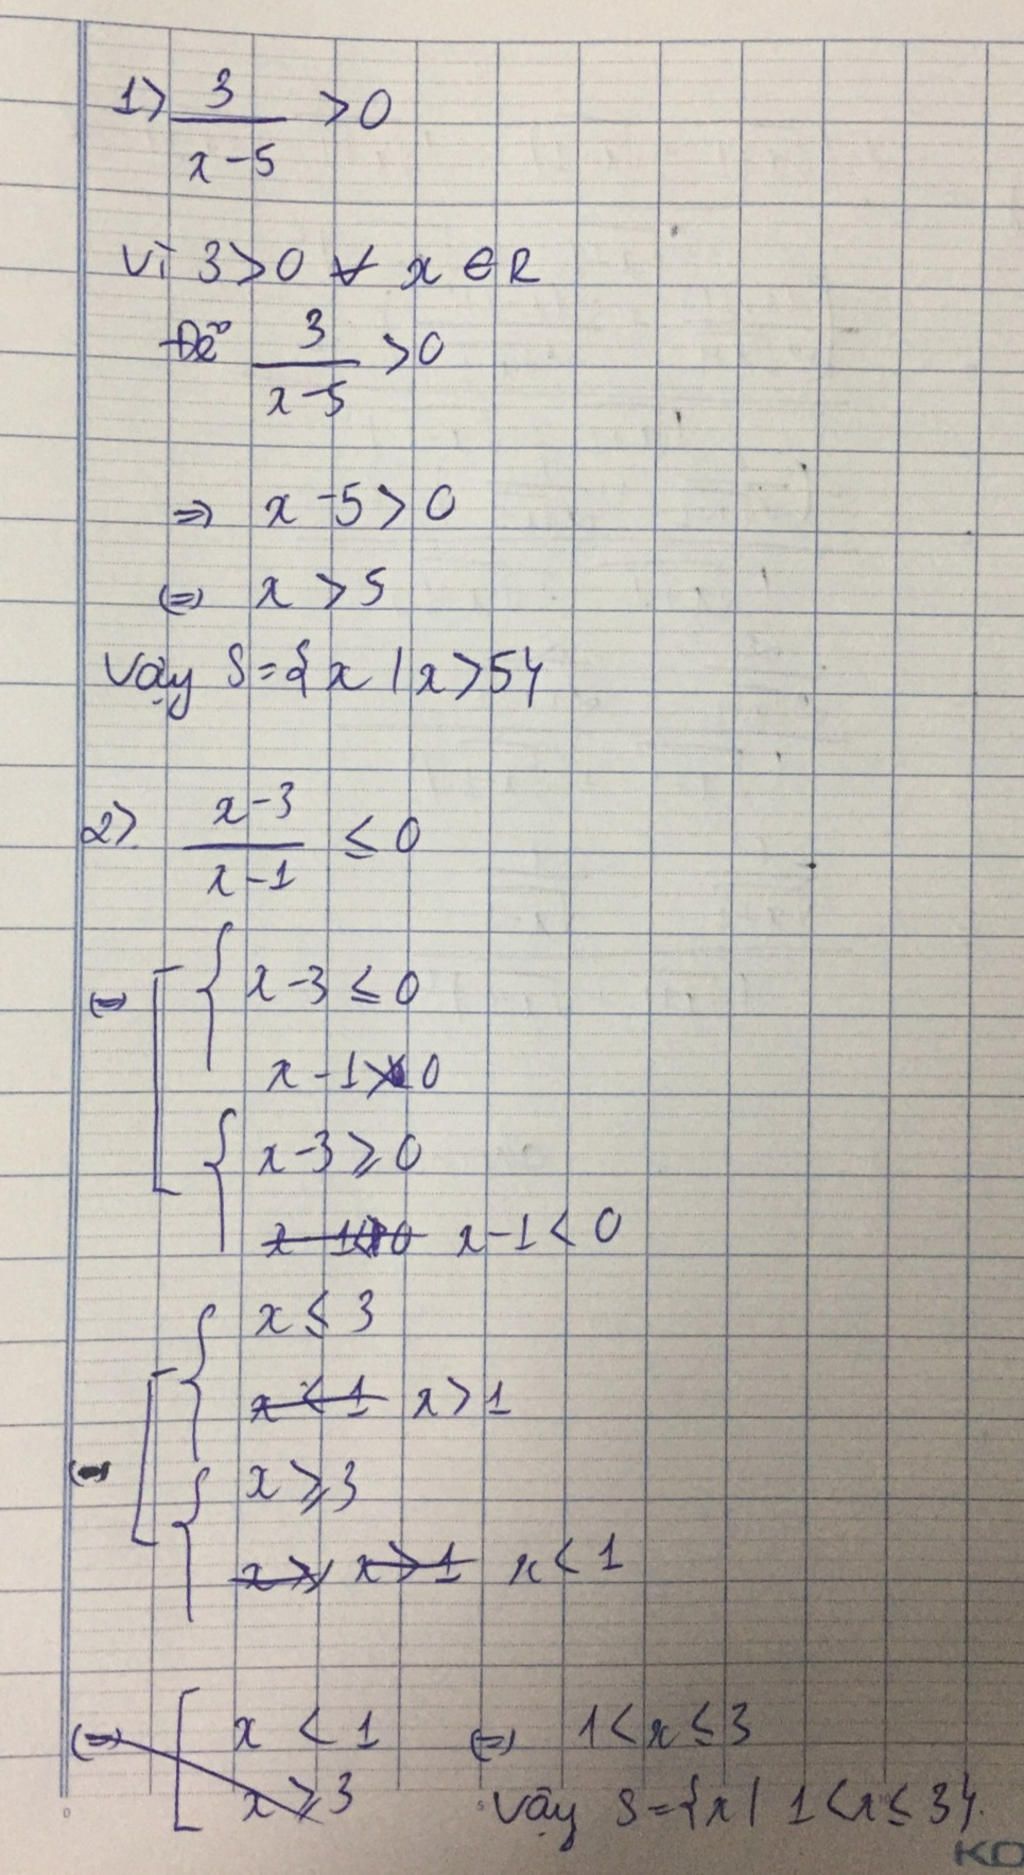 1) 3/(x-5) > 0
Vì 3 > 0 ∀ x ∈ R
Để 3/(x-5) > 0
⇒ x - 5 > 0
(=) x > 5
Vậy S = {x | x > 5}
2) (x-3)/(x-1) ≤ 0
(=) [ { x - 3 ≤ 0
x - 1 > 0
{ x - 3 ≥ 0
x - 1 < 0
(=) [ { x ≤ 3
x < 1 x > 1
{ x ≥ 3
x > 1 x < 1
(=) [ x < 1 (=) 1 < x ≤ 3
x ≥ 3 Vậy S = {x | 1 < x ≤ 3}.